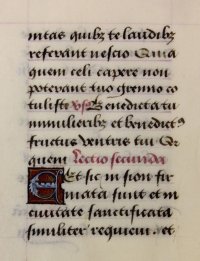 mtas quibz te laudibz
referant nescio Quia
quem celi capere non
poterant tuo gremio co
tulisti vs Benedicta tu
in mulieribz et benedict9
fructus ventris tui Q
quem Lectio secunda
Et sic in sion fir
mata sum et in
civitate sanctificata
similiter requievi. et